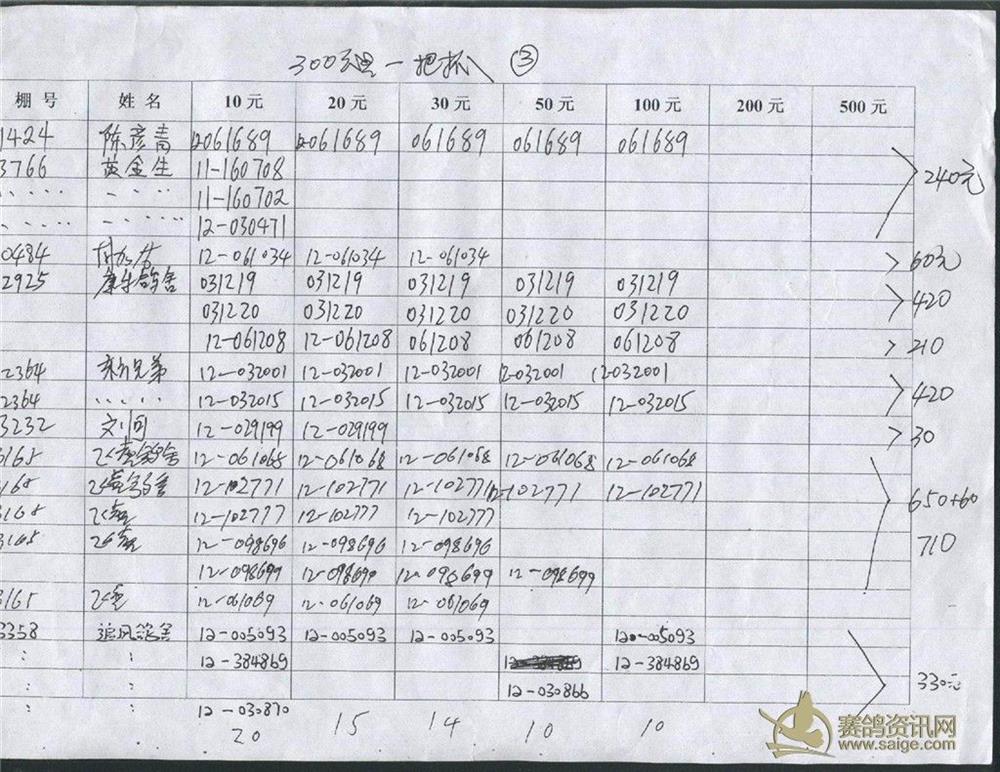 300公里一把抓 ③
棚号 姓名 10元 20元 30元 50元 100元 200元 500元
1424 陈彦青 12061689 12061689 061689 061689 061689
3766 黄金生 11-160708
11-160702 240元
12-030471
0484 12-061034 12-061034 12-061034 60元
2925 康乐鸽舍 031219 031219 031219 031219 031219
031220 031220 031220 031220 031220 420
12-061208 12-061208 061208 061208 061208 210
2364 兄弟 12-032001 12-032001 12-032001 12-032001 12-032001
2364 12-032015 12-032015 12-032015 12-032015 12-032015 420
3232 刘 12-029199 12-029199 30
3168 12-061068 12-061068 12-061068 12-061068 12-061068
168 12-102771 12-102771 12-102771 12-102771 12-102771 650+60
3168 12-102777 12-102777 12-102777
3168 12-098696 12-098696 12-098696 710
12-098699 12-098699 12-098699 12-098699
3165 12-061069 12-061069 12-061069
3358 追风鸽舍 12-005093 12-005093 12-005093 12-005093
12-384869 12-384869
12-030866 330元
12-030870
20 15 14 10 10
赛鸽资讯网
www.saige.com